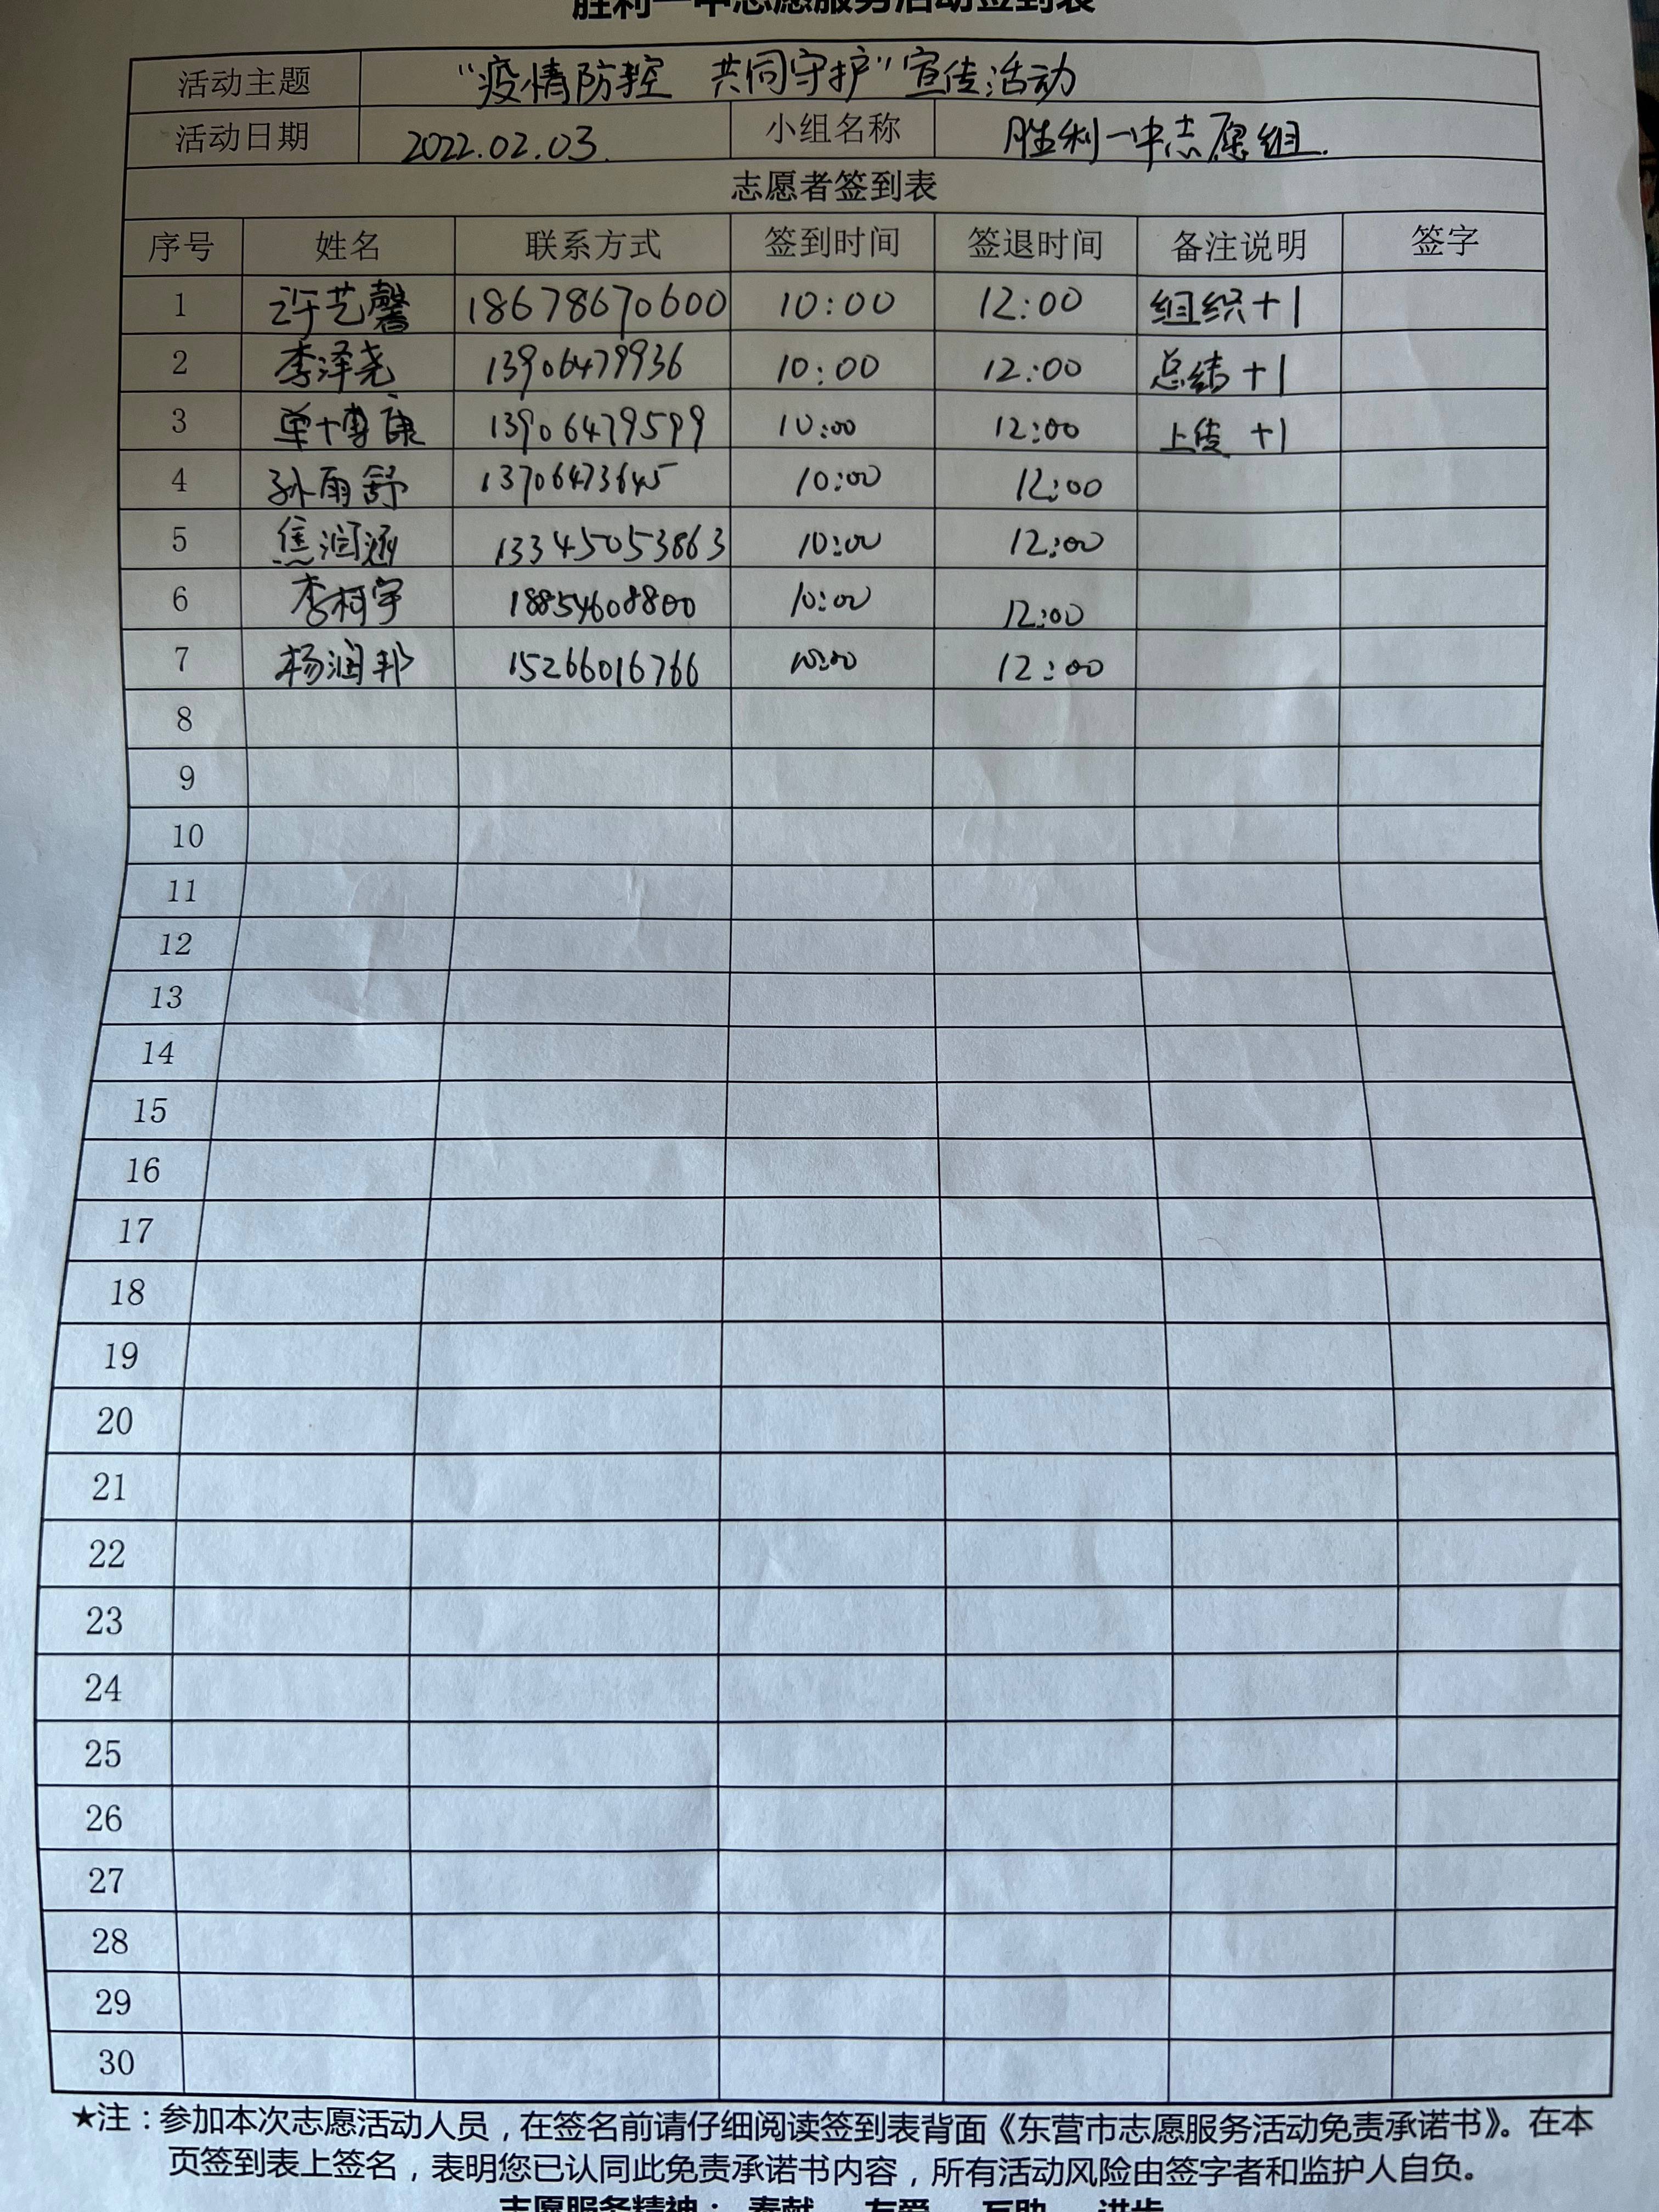 胜利一中志愿服务活动签到表
活动主题 “疫情防控 共同守护”宣传活动
活动日期 2022.02.03. 小组名称 胜利一中志愿组.
志愿者签到表
序号 姓名 联系方式 签到时间 签退时间 备注说明 签字
1 许艺馨 18678670600 10:00 12:00 组织+1
2 李泽尧 13906479936 10:00 12:00 总结+1
3 单博康 13906479599 10:00 12:00 上传+1
4 孙雨舒 13706473645 10:00 12:00
5 焦润涵 13345053863 10:00 12:00
6 李柯宇 18854608800 10:00 12:00
7 杨润邦 15266016766 10:00 12:00
8
9
10
11
12
13
14
15
16
17
18
19
20
21
22
23
24
25
26
27
28
29
30
★注：参加本次志愿活动人员，在签名前请仔细阅读签到表背面《东营市志愿服务活动免责承诺书》。在本
页签到表上签名，表明您已认同此免责承诺书内容，所有活动风险由签字者和监护人自负。
志愿服务精神：奉献 友爱 互助 进步